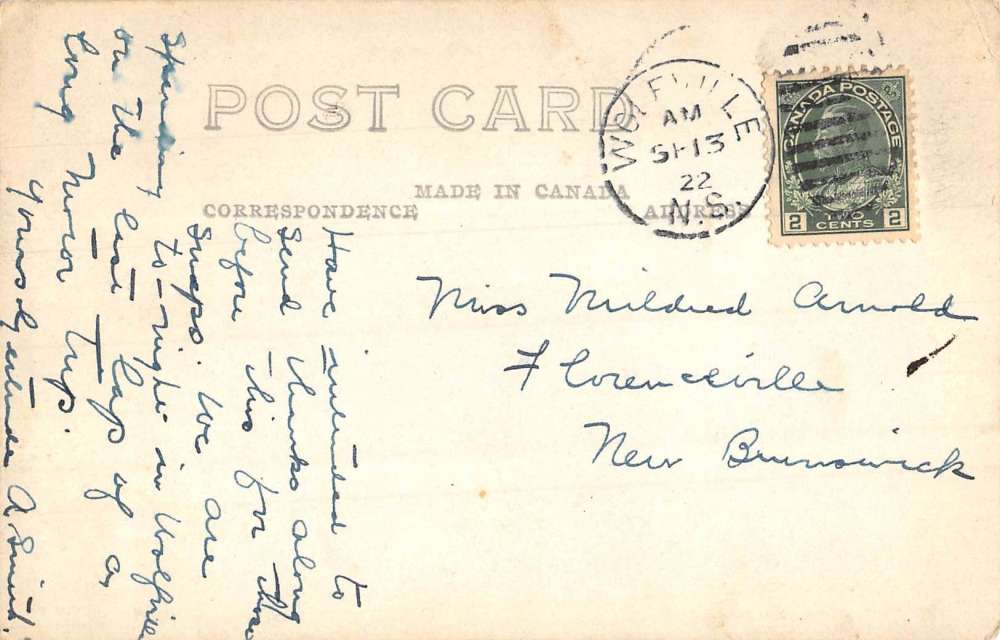 POST CARD
MADE IN CANADA
CORRESPONDENCE
ADDRESS
WOLFVILLE
AM
SP 13
22
N.S.
CANADA POSTAGE
2 TWO 2
CENTS
Miss Mildred Arnold
Florenceville
New Brunswick
Have intended to
send thanks along
before this for those
snaps. We are
spending to-night in Wolfville
on the last lap of a
long motor trip.
Yours Gertrude A. Smith.